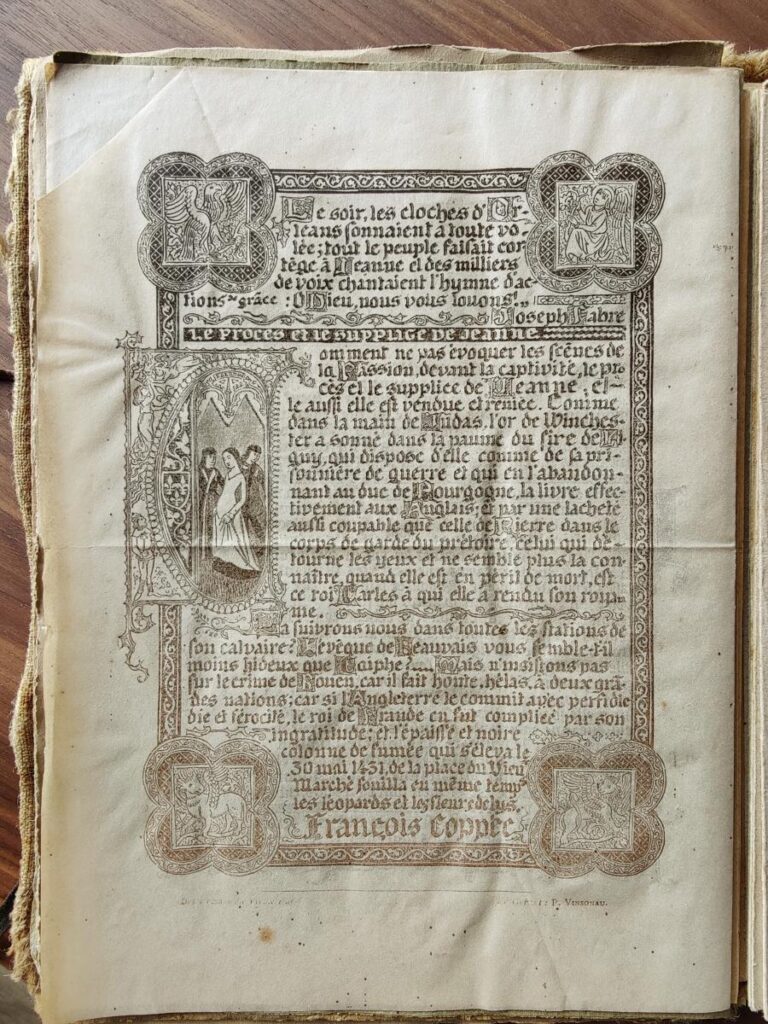 Le soir, les cloches d'Or-
léans sonnaient à toute vo-
lée; tout le peuple faisait cor-
tège à Jeanne et des milliers
de voix chantaient l'hymne d'ac-
tions de grâce : O Dieu, nous vous louons!...
Joseph Fabre
LE PROCÈS ET LE SUPPLICE DE JEANNE
Comment ne pas évoquer les scènes de
la Passion, devant la captivité, le pro
cès et le supplice de Jeanne, el-
le aussi elle est vendue et reniée. Comme
dans la main de Judas, l'or de Winches-
ter a sonné dans la paume du sire de Li
guy, qui dispose d'elle comme de sa pri-
sonnière de guerre et qui en l'abandon-
nant au duc de Bourgogne, la livre effec-
tivement aux Anglais; et par une lâcheté
aussi coupable que celle de Pierre dans le
corps de garde du prétoire, celui qui dé-
tourne les yeux et ne semble plus la con-
naître, quand elle est en péril de mort, est
ce roi Carles à qui elle a rendu son royau
me.
La suivrons nous dans toutes les stations de
son calvaire? L'évêque de Beauvais vous semble-t-il
moins hideux que Caïphe?.... Mais n'insistons pas
sur le crime de Rouen, car il fait honte, hélas, à deux gran-
des nations; car si l'Angleterre le commit avec perfidie
die et férocité, le roi de France en fut complice par son
ingratitude; et l'épaisse et noire
colonne de fumée qui s'éleva le
30 mai 1431, de la place du Vieux
Marché souilla en même temps
les léopards et les fleurs de lys.
François Coppée
P. VINSONAU.